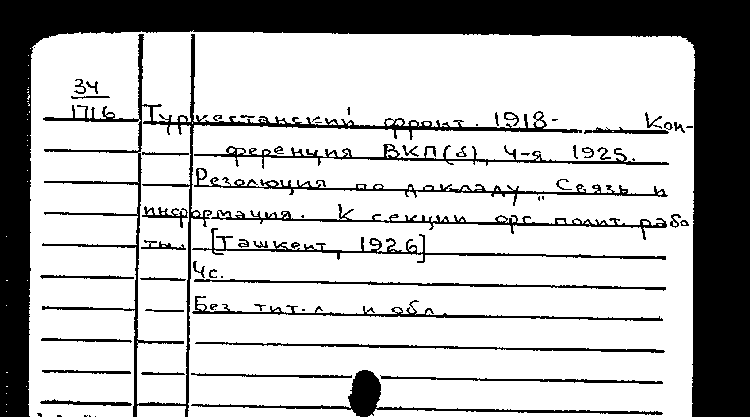 34
1716
Туркестанский фронт. 1918- ... Кон-
ференция ВКП(б), 4-я. 1925.
Резолюция по докладу „Связь и
информация. К секции орг. полит. рабо
ты. [Ташкент, 1926]
4с.
Без тит. л. и обл.